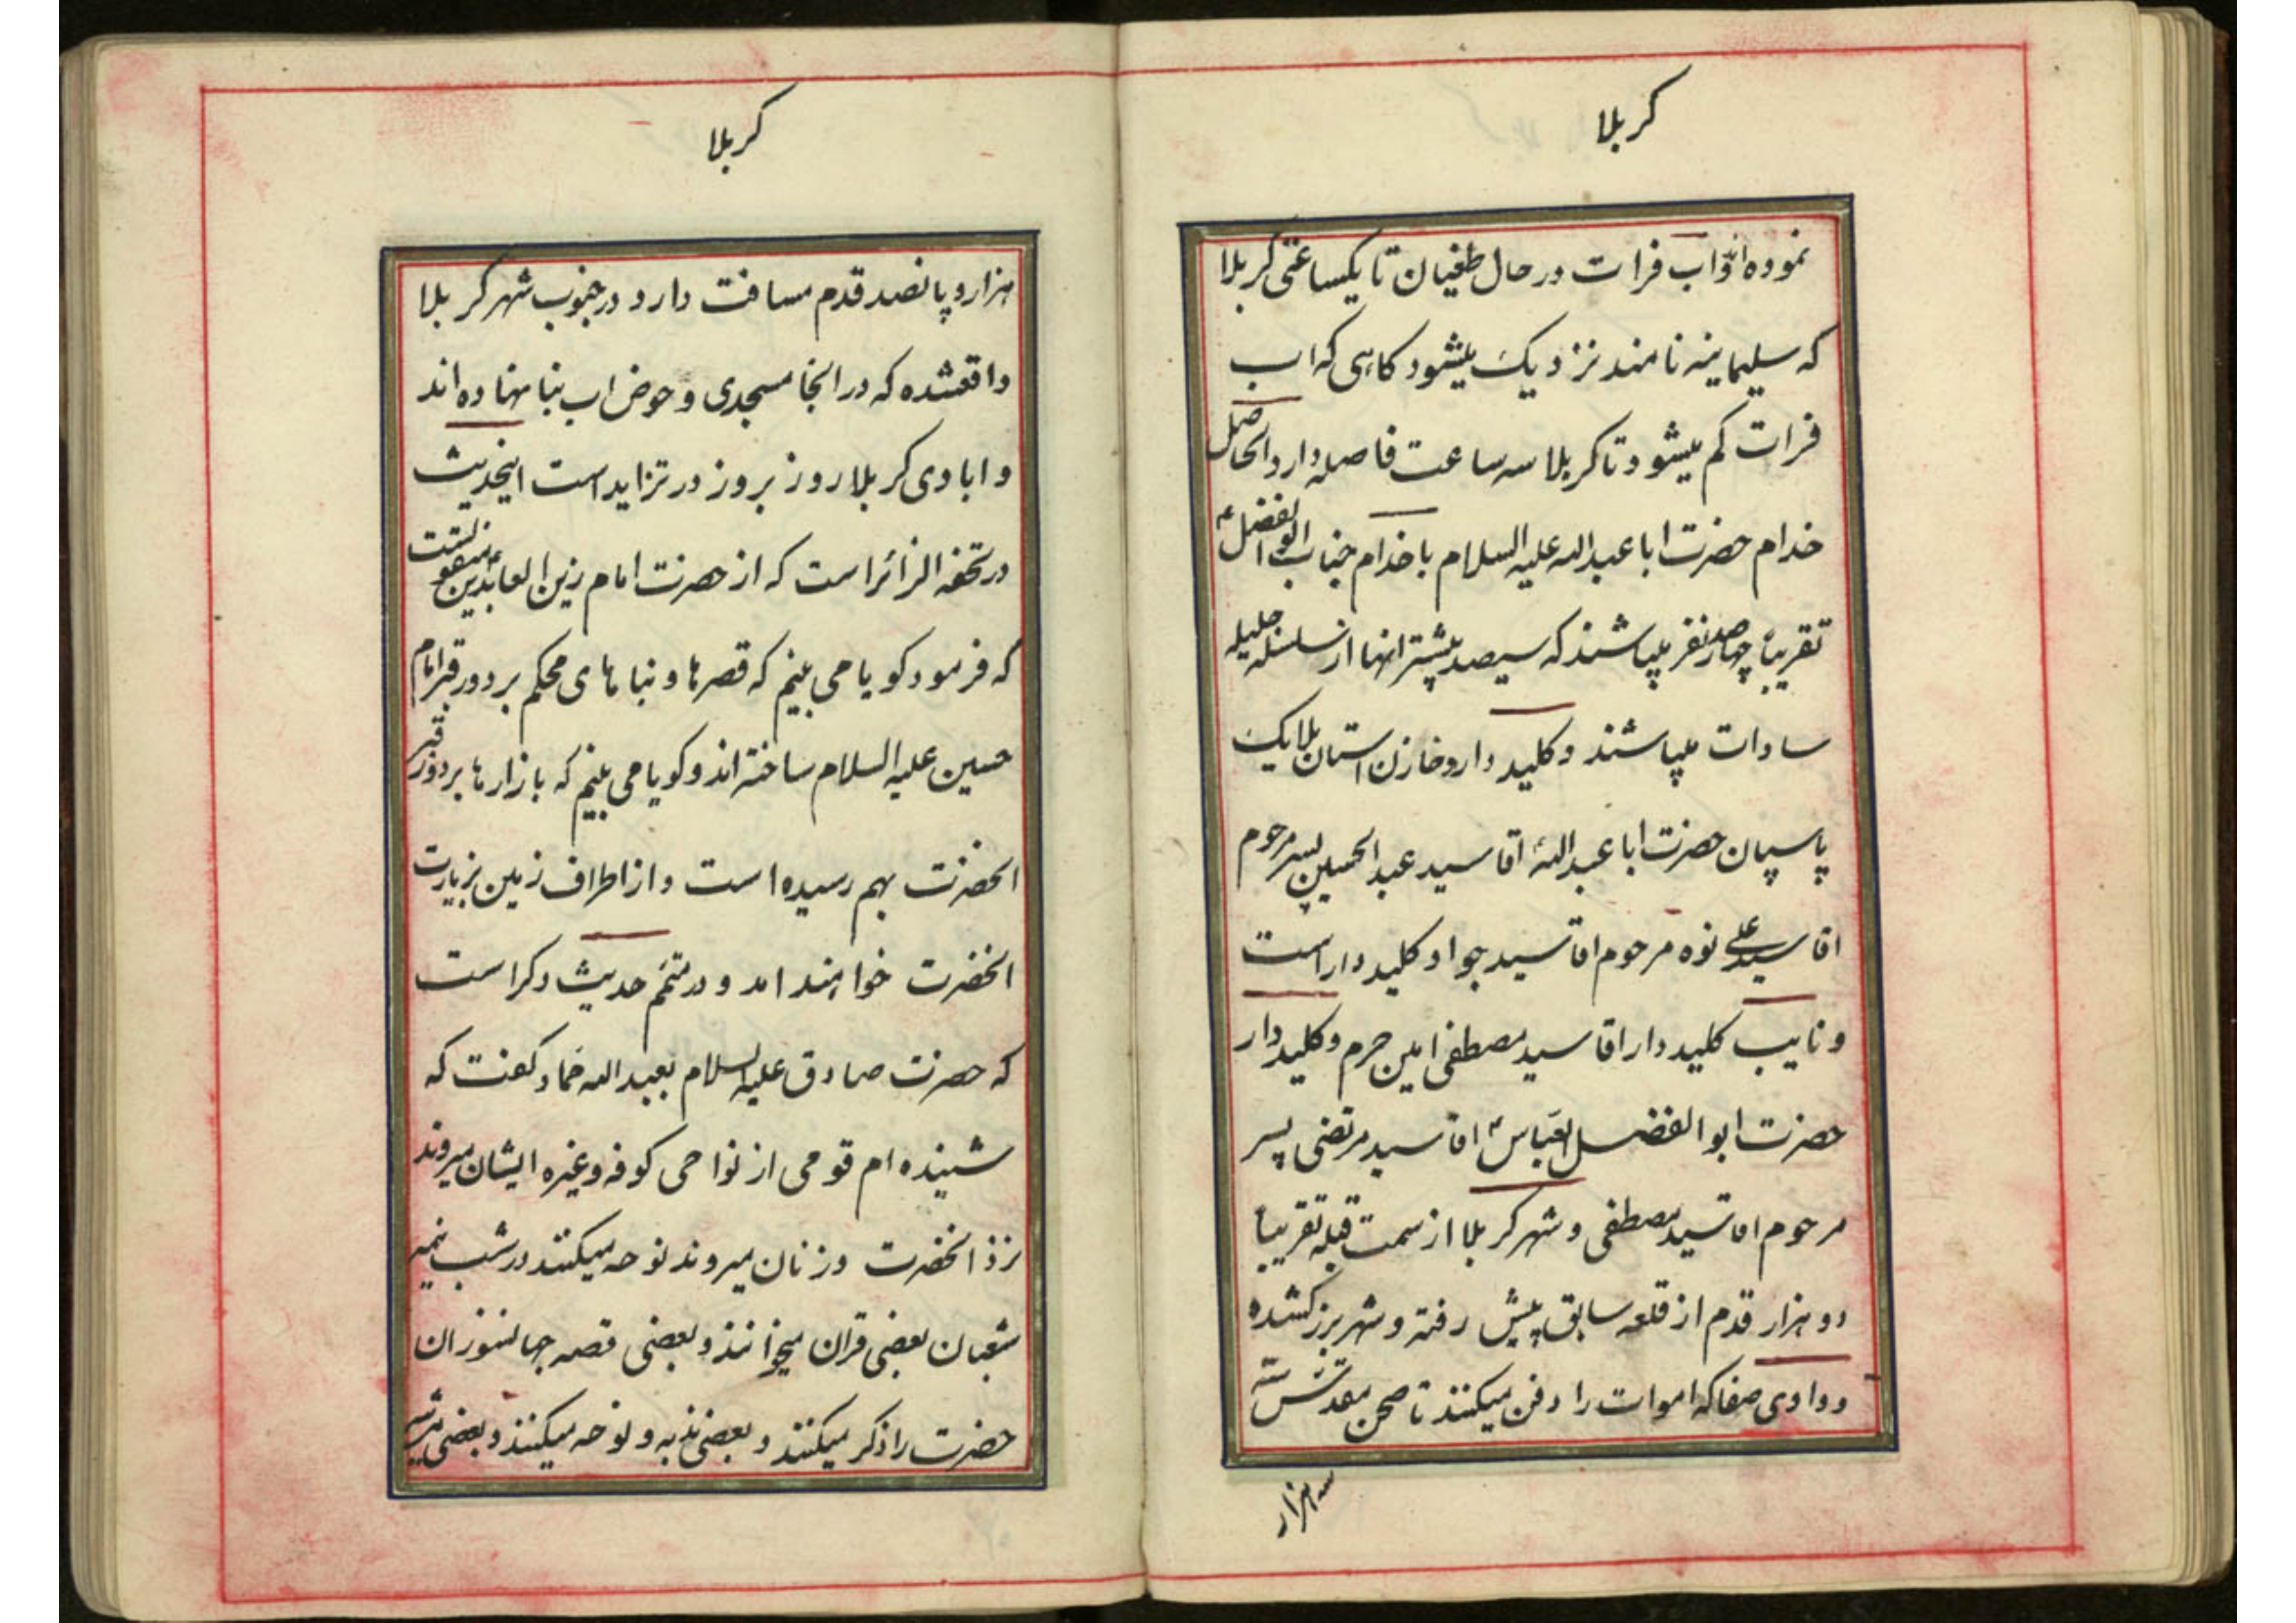 کربلا
نموده اند و اب فرات در حال طغیان تا یکساعتی کربلا
که سلیمانیه نامند نزدیک میشود کاهی که اب
فرات کم میشود تا کربلا سه ساعت فاصله دارد الحاصل
خدام حضرت ابا عبدالله علیه السلام با خدام جناب ابوالفضل ع
تقریباً چهارصد نفر میباشند که سیصد بیشتر انها از سلسله جلیله
سادات میباشند و کلید دار و خازن استان ملایک
پاسپان حضرت ابا عبدالله اقا سید عبد الحسین پسر مرحوم
اقا سید علی نوه مرحوم اقا سید جواد کلید دار است
و نایب کلید دار اقا سید مصطفی امین حرم و کلید دار
حضرت ابوالفضل العباس ع اقا سید مرتضی پسر
مرحوم اقا سید مصطفی و شهر کربلا از سمت قبله تقریباً
دو هزار قدم از قلعه سابق پیش رفته و شهر بزرک شده
و وادی صفا که اموات را دفن میکنند تا صحن مقدس سه
سه هزار
کربلا
هزار و پانصد قدم مسافت دارد و در جنوب شهر کربلا
واقعشده که در انجا مسجدی و حوض اب بنا نهاده اند
و ابادی کربلا روز بروز در تزاید است اینحدیث
در تحفه الزائر است که از حضرت امام زین العابدین ع منقولست
که فرمود کویا می بینم که قصرها و بناهای محکم بر دور قبر امام
حسین علیه السلام ساخته اند و کویا می بینم که بازارها بر دور قبر
انحضرت بهم رسیده است و از اطراف زمین بزیارت
انحضرت خواهند امد و در متمم حدیث دکر است
که حضرت صادق علیه السلام بعبد الله حماد کفت که
شنیده ام قومی از نواحی کوفه و غیره ایشان میروند
نزد انحضرت و زنان میروند نوحه میکنند در شب نیمه
شعبان بعضی قران میخوانند و بعضی قصه جانسوز ان
حضرت را ذکر میکنند و بعضی ندبه و نوحه میکنند و بعضی مرثیه